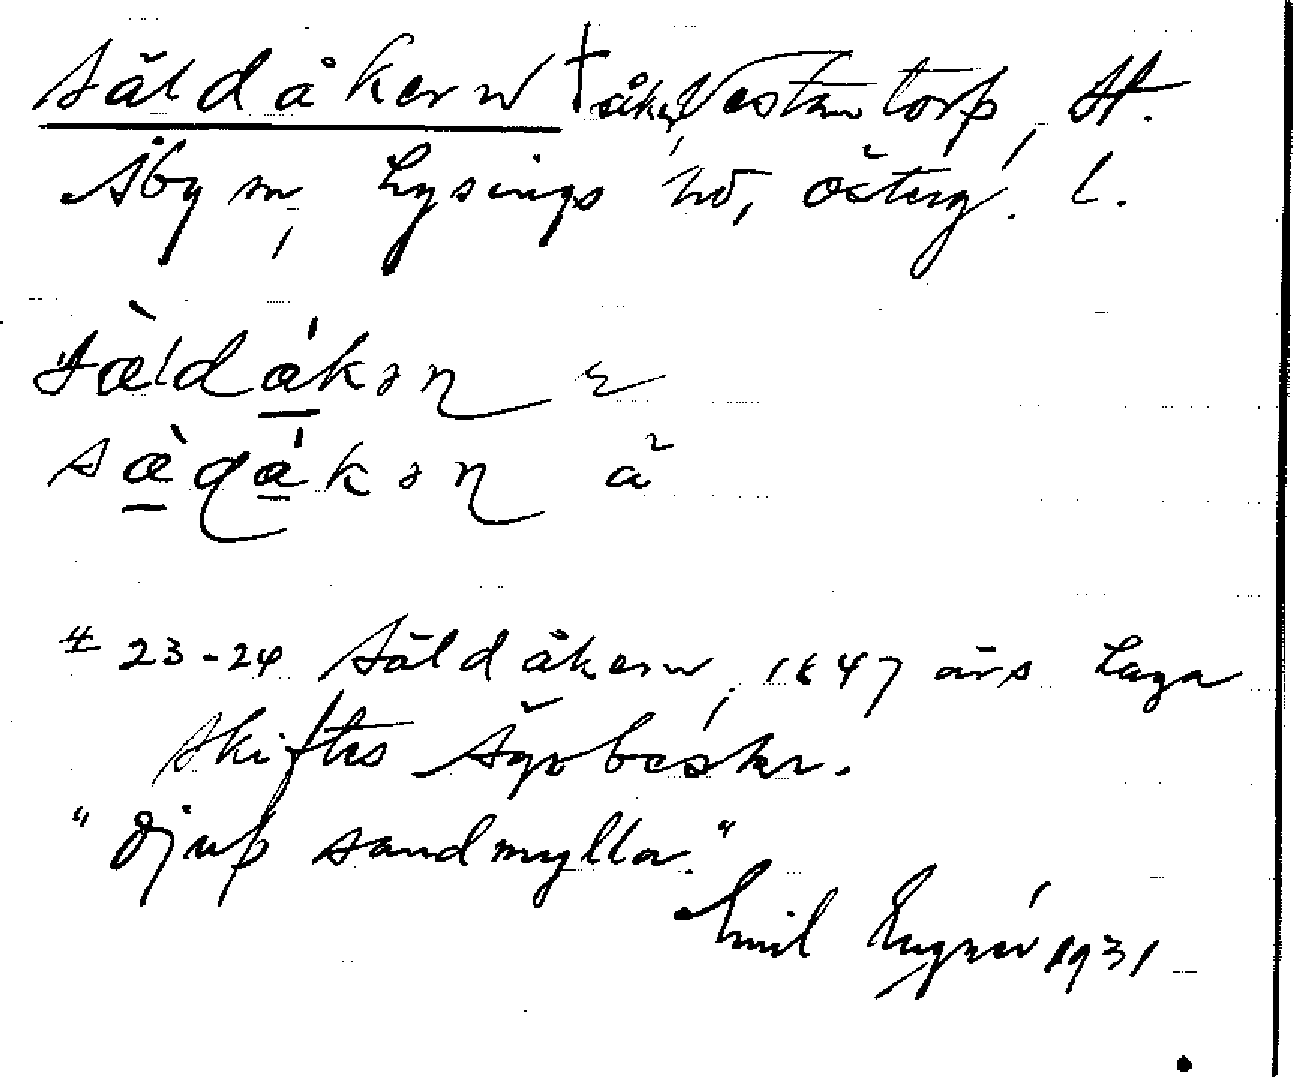 Säldåkern † åker, Västantorp, St.
Åby sn, Lysings hd, Österg. l.
sæ̀ldákən
sæ̀ɖákən ä
# 23-24 Säldåkern, 1847 års Laga
skiftes Ägobeskr.
"Djup sandmylla."
Emil 1931